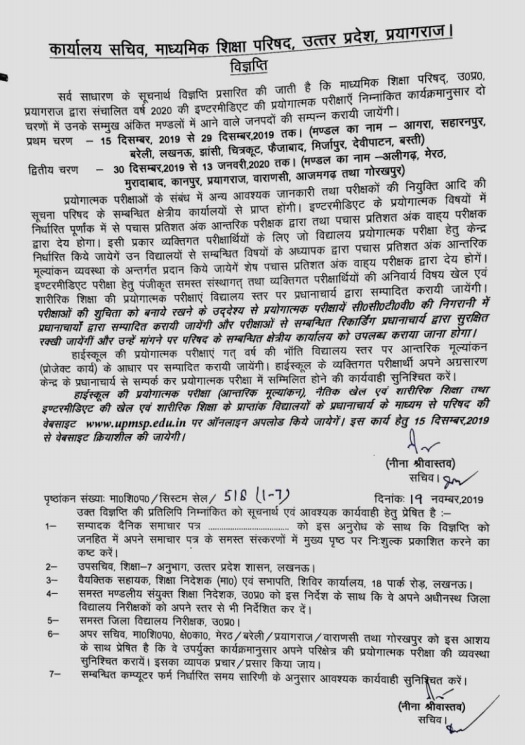 कार्यालय सचिव, माध्यमिक शिक्षा परिषद, उत्तर प्रदेश, प्रयागराज।
विज्ञप्ति
सर्व साधारण के सूचनार्थ विज्ञप्ति प्रसारित की जाती है कि माध्यमिक शिक्षा परिषद्, उ0प्र0,
प्रयागराज द्वारा संचालित वर्ष 2020 की इण्टरमीडिएट की प्रयोगात्मक परीक्षाएँ निम्नांकित कार्यक्रमानुसार दो
चरणों में उनके सम्मुख अंकित मण्डलों में आने वाले जनपदों की सम्पन्न करायी जायेंगी।
प्रथम चरण – 15 दिसम्बर, 2019 से 29 दिसम्बर,2019 तक। (मण्डल का नाम – आगरा, सहारनपुर,
बरेली, लखनऊ, झांसी, चित्रकूट, फैजाबाद, मिर्जापुर, देवीपाटन, बस्ती)
द्वितीय चरण – 30 दिसम्बर,2019 से 13 जनवरी,2020 तक। (मण्डल का नाम –अलीगढ़, मेरठ,
मुरादाबाद, कानपुर, प्रयागराज, वाराणसी, आजमगढ़ तथा गोरखपुर)
प्रयोगात्मक परीक्षाओं के संबंध में अन्य आवश्यक जानकारी तथा परीक्षकों की नियुक्ति आदि की
सूचना परिषद के सम्बन्धित क्षेत्रीय कार्यालयों से प्राप्त होंगी। इण्टरमीडिएट के प्रयोगात्मक विषयों में
निर्धारित पूर्णांक में से पचास प्रतिशत अंक आन्तरिक परीक्षक द्वारा तथा पचास प्रतिशत अंक वाह्य परीक्षक
द्वारा देय होगा। इसी प्रकार व्यक्तिगत परीक्षार्थियों के लिए जो विद्यालय प्रयोगात्मक परीक्षा हेतु केन्द्र
निर्धारित किये जायेगें उन विद्यालयों से सम्बन्धित विषयों के अध्यापक द्वारा पचास प्रतिशत अंक आन्तरिक
मूल्यांकन व्यवस्था के अन्तर्गत प्रदान किये जायेगें शेष पचास प्रतिशत अंक वाह्य परीक्षक द्वारा देय होगें।
इण्टरमीडिएट परीक्षा हेतु पंजीकृत समस्त संस्थागत् तथा व्यक्तिगत परीक्षार्थियों की अनिवार्य विषय खेल एवं
शारीरिक शिक्षा की प्रयोगात्मक परीक्षाएं विद्यालय स्तर पर प्रधानाचार्य द्वारा सम्पादित करायी जायेगी।
परीक्षाओं की शुचिता को बनाये रखने के उद्देश्य से प्रयोगात्मक परीक्षायें सी0सी0टी0वी0 की निगरानी में
प्रधानाचार्यो द्वारा सम्पादित करायी जायेंगी और परीक्षाओं से सम्बन्धित रिकार्डिंग प्रधानाचार्य द्वारा सुरक्षित
रक्खी जायेंगी और उन्हें मांगने पर परिषद के सम्बन्धित क्षेत्रीय कार्यालय को उपलब्ध कराया जाना होगा।
हाईस्कूल की प्रयोगात्मक परीक्षाएं गत् वर्ष की भाँति विद्यालय स्तर पर आन्तरिक मूल्यांकन
(प्रोजेक्ट कार्य) के आधार पर सम्पादित करायी जायेंगी। हाईस्कूल के व्यक्तिगत परीक्षार्थी अपने अग्रसारण
केन्द्र के प्रधानाचार्य से सम्पर्क कर प्रयोगात्मक परीक्षा में सम्मिलित होने की कार्यवाही सुनिश्चित करें।
हाईस्कूल की प्रयोगात्मक परीक्षा (आन्तरिक मूल्यांकन), नैतिक खेल एवं शारीरिक शिक्षा तथा
इण्टरमीडिएट की खेल एवं शारीरिक शिक्षा के प्राप्तांक विद्यालयों के प्रधानाचार्य के माध्यम से परिषद की
वेबसाइट www.upmsp.edu.in पर ऑनलाइन अपलोड किये जायेगें। इस कार्य हेतु 15 दिसम्बर,2019
से वेबसाइट क्रियाशील की जायेगी।
(नीना श्रीवास्तव)
सचिव।
पृष्ठांकन संख्याः मा0शि0प0/सिस्टम सेल/ 518 (1-7) दिनांकः 19 नवम्बर,2019
उक्त विज्ञप्ति की प्रतिलिपि निम्नांकित को सूचनार्थ एवं आवश्यक कार्यवाही हेतु प्रेषित है :–
1– सम्पादक दैनिक समाचार पत्र .............................. को इस अनुरोध के साथ कि विज्ञप्ति को
जनहित में अपने समाचार पत्र के समस्त संस्करणों में मुख्य पृष्ठ पर निःशुल्क प्रकाशित करने का
कष्ट करें।
2– उपसचिव, शिक्षा–7 अनुभाग, उत्तर प्रदेश शासन, लखनऊ।
3– वैयक्तिक सहायक, शिक्षा निदेशक (मा0) एवं सभापति, शिविर कार्यालय, 18 पार्क रोड़, लखनऊ।
4– समस्त मण्डलीय संयुक्त शिक्षा निदेशक, उ0प्र0 को इस निर्देश के साथ कि वे अपने अधीनस्थ जिला
विद्यालय निरीक्षकों को अपने स्तर से भी निर्देशित कर दें।
5– समस्त जिला विद्यालय निरीक्षक, उ0प्र0।
6– अपर सचिव, मा0शि0प0, क्षे0का0, मेरठ/बरेली/प्रयागराज/वाराणसी तथा गोरखपुर को इस आशय
के साथ प्रेषित है कि वे उपर्युक्त कार्यक्रमानुसार अपने परिक्षेत्र की प्रयोगात्मक परीक्षा की व्यवस्था
सुनिश्चित करायें। इसका व्यापक प्रचार/प्रसार किया जाय।
7– सम्बन्धित कम्प्यूटर फर्म निर्धारित समय सारिणी के अनुसार आवश्यक कार्यवाही सुनिश्चित करें।
(नीना श्रीवास्तव)
सचिव।